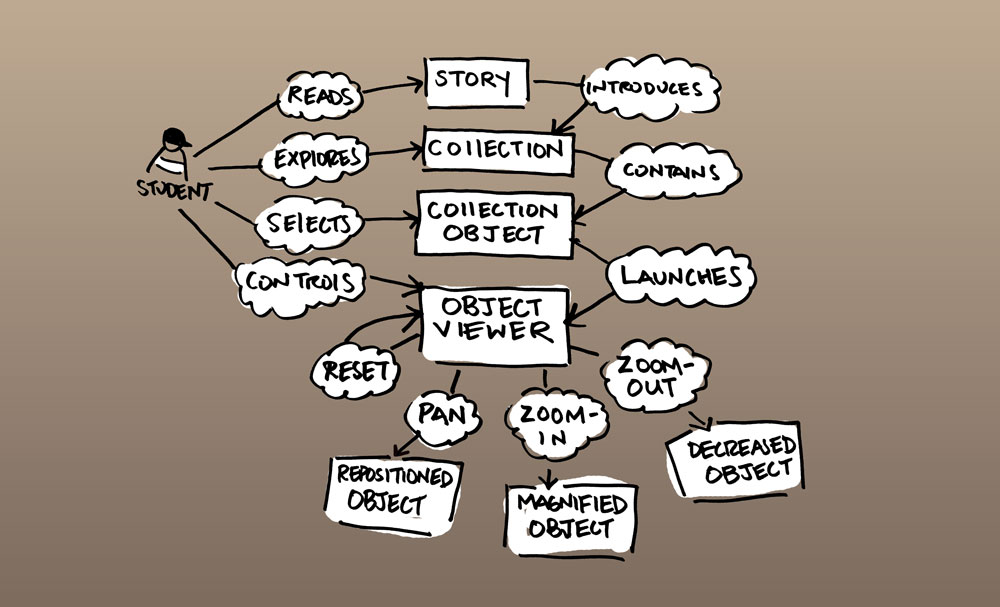 READS
STORY
INTRODUCES
EXPLORES
COLLECTION
CONTAINS
STUDENT
SELECTS
COLLECTION
OBJECT
CONTROLS
LAUNCHES
OBJECT
VIEWER
RESET
PAN
ZOOM-
IN
ZOOM-
OUT
REPOSITIONED
OBJECT
MAGNIFIED
OBJECT
DECREASED
OBJECT